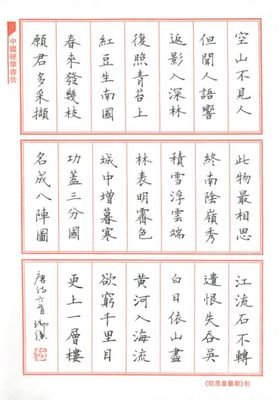 空山不見人
但聞人語響
返影入深林
復照青苔上
紅豆生南國
春來發幾枝
願君多采擷
此物最相思
終南陰嶺秀
積雪浮雲端
林表明霽色
城中增暮寒
功蓋三分國
名成八陣圖
江流石不轉
遺恨失吞吳
白日依山盡
黃河入海流
欲窮千里目
更上一層樓
唐詩六首
中國硬筆書法